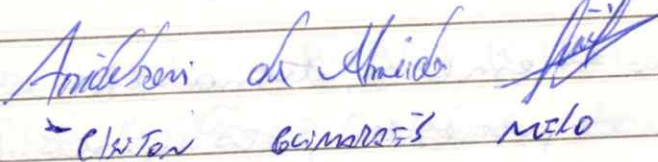 Anderson de Almeida
Cleiton Guimarães Melo